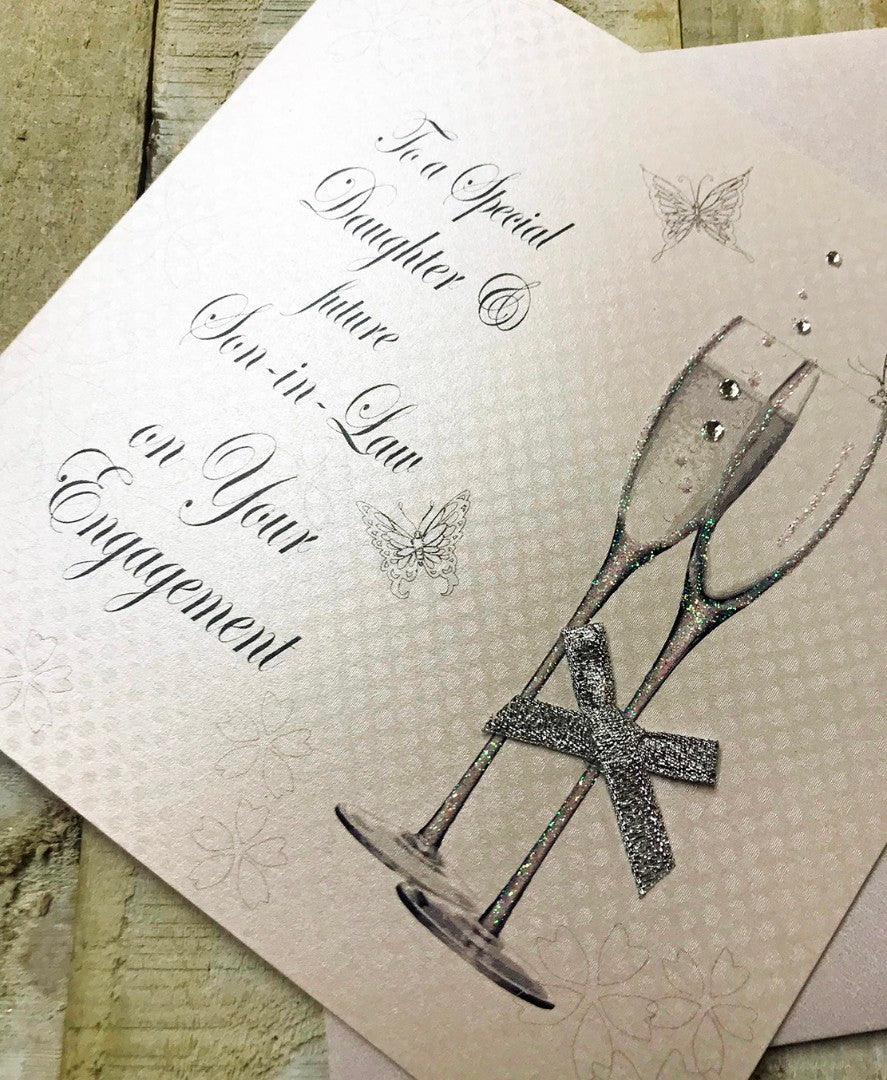 To a Special
Daughter &
future
Son-in-Law
on Your
Engagement